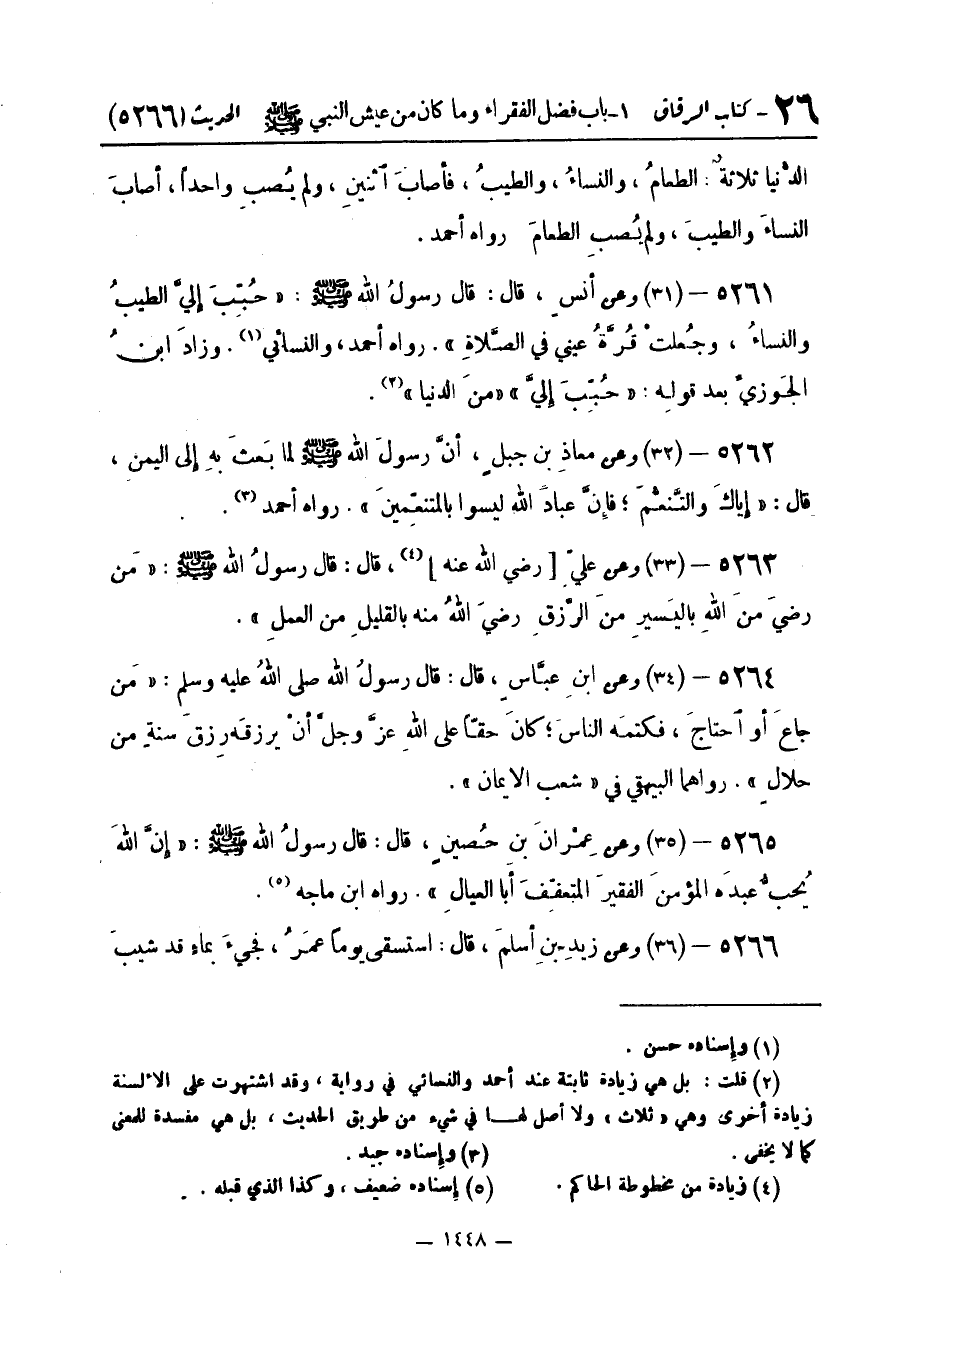 ٢٦ - كتاب الرقاق ١ - باب فضل الفقراء وما كان من عيش النبي ﷺ الحديث (٥٢٦٦)
الدُّنيا ثلاثةٌ : الطعامُ ، والنساءُ ، والطيبُ ، فأصابَ ٱثنينِ ، ولم يُصبِ واحداً ، أصابَ
النساءَ والطيبَ ، ولم يُصبِ الطعامَ رواه أحمد .
٥٢٦١ – (٣١) وعن أنسٍ ، قال : قال رسولُ الله ﷺ : « حُبِّبَ إِليَّ الطيبُ
والنساءُ ، وجُعلتْ قُرَّةُ عيني في الصَّلاةِ » . رواه أحمد ، والنسائي (١) . وزادَ ابنُ
الجَوزيِّ بعد قولِه : « حُبِّبَ إِليَّ » « منَ الدنيا » (٢) .
٥٢٦٢ – (٣٢) وعن معاذِ بنِ جبلٍ ، أنَّ رسولَ الله ﷺ لما بَعثَ بهِ إِلى اليمنِ ،
قال : « إِياكَ والتَّنعُّمَ ؛ فإِنَّ عبادَ اللهِ ليسوا بالمتنعّمينَ » . رواه أحمد (٣) .
٥٢٦٣ – (٣٣) وعن عليّ [ رضي الله عنه ] (٤) ، قال : قال رسولُ الله ﷺ : « مَن
رضيَ منَ اللهِ باليَسيرِ منَ الرِّزقِ رضيَ اللهُ منه بالقليلِ منَ العملِ » .
٥٢٦٤ – (٣٤) وعن ابنِ عبَّاسٍ ، قال : قال رسولُ الله صلى اللهُ عليه وسلم : « مَن
جاعَ أو ٱحتاجَ ، فكتمَه الناسَ ؛ كانَ حقّاً على اللهِ عزَّ وجلَّ أنْ يرزقَه رزقَ سنةٍ من
حلالٍ » . رواهما البيهقي في « شعب الايمان » .
٥٢٦٥ – (٣٥) وعن عِمْرانَ بنِ حُصينٍ ، قال : قال رسولُ الله ﷺ : « إِنَّ اللهَ
يُحبُّ عبدَه المؤمنَ الفقيرَ المتعفّفَ أبا العيالِ » . رواه ابن ماجه (٥) .
٥٢٦٦ – (٣٦) وعن زيدِ بنِ أسلمَ ، قال : استسقى يوماً عمَرُ ، فجيءَ بماءٍ قد شيبَ
(١) وإِسناده حسن .
(٢) قلت : بل هي زيادة ثابتة عند أحمد والنسائي في رواية ، وقد اشتهرت على الالسنة
زيادة أخرى وهي « ثلاث » ولا أصل لها في شيء من طريق الحديث ، بل هي مفسدة للمعنى
كما لا يخفى . (٣) وإِسناده جيد .
(٤) زيادة من مخطوطة الحاكم . (٥) إِسناده ضعيف ، وكذا الذي قبله .
– ١٤٤٨ –